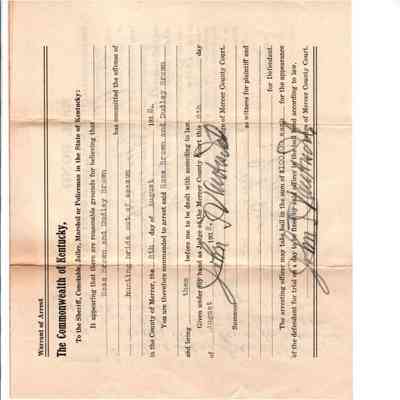 Warrant of Arrest
The Commonwealth of Kentucky,
To the Sheriff, Constable, Jailer, Marshal or Policeman in the State of Kentucky:
It appearing that there are reasonable grounds for believing that
Ross Brown and Dudley Brown
has committed the offense of
hunting birds out of season
in the County of Mercer, the 8th day of August 191
You are therefore commanded to arrest said Ross Brown and Dudley Brown
and bring them before me to be dealt with according to law.
Given under my hand as Judge of the Mercer County Court this 8th day
of August 191
of Mercer County Court.
Summon as witness for plaintiff and
for Defendant.
The arresting officer may take bail in the sum of $100.00 each for the appearance
of the defendant for trial on a day to be fixed by said officer in the bail bond according to law.
of Mercer County Court.